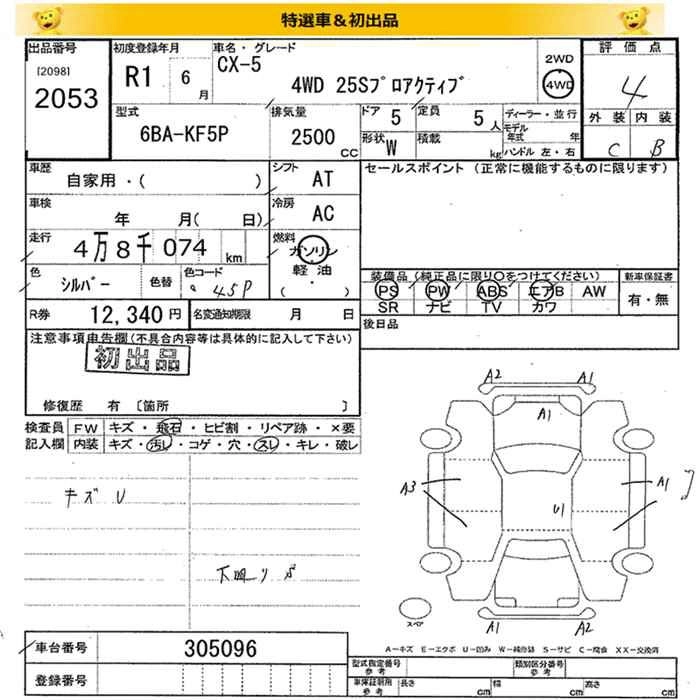 特選車＆初出品
出品番号
[2098]
2053
初度登録年月
R1 6月
車名・グレード
CX-5
4WD 25Sプロアクティブ
2WD
4WD
評価点
4
外装 内装
C B
型式
6BA-KF5P
排気量
2500 CC
ドア 5
定員 5人
形状 W
積載 kg
ディーラー・並行
モデル年式 年
ハンドル 左・右
車歴
自家用・( )
シフト AT
セールスポイント (正常に機能するものに限ります)
車検
年 月( 日)
冷房 AC
走行
4万8千074 km
燃料
ガソリン
軽油
( ・ )
色
シルバー
色替
色コード
45P
装備品 (純正品に限り○をつけてください)
PS PW ABS エアB AW
SR ナビ TV カワ
新車保証書
有・無
R券 12,340円
名変通知期限 月 日
後日品
注意事項申告欄(不具合内容等は具体的に記入して下さい)
初出品
修復歴 有 〔箇所 〕
検査員 FW キズ・飛石・ヒビ割・リペア跡・×要
記入欄 内装 キズ・汚レ・コゲ・穴・スレ・キレ・破レ
キズ U
A2 A1
A1
A3
A1
U1
スペア
A1 A2
A－キズ E－エクボ U－凹み W－補修跡 S－サビ C－腐食 XX－交換済
車台番号 305096
登録番号
型式指定番号 参考
類別区分番号 参考
車庫証明用 参考
長さ cm 幅 cm 高さ cm